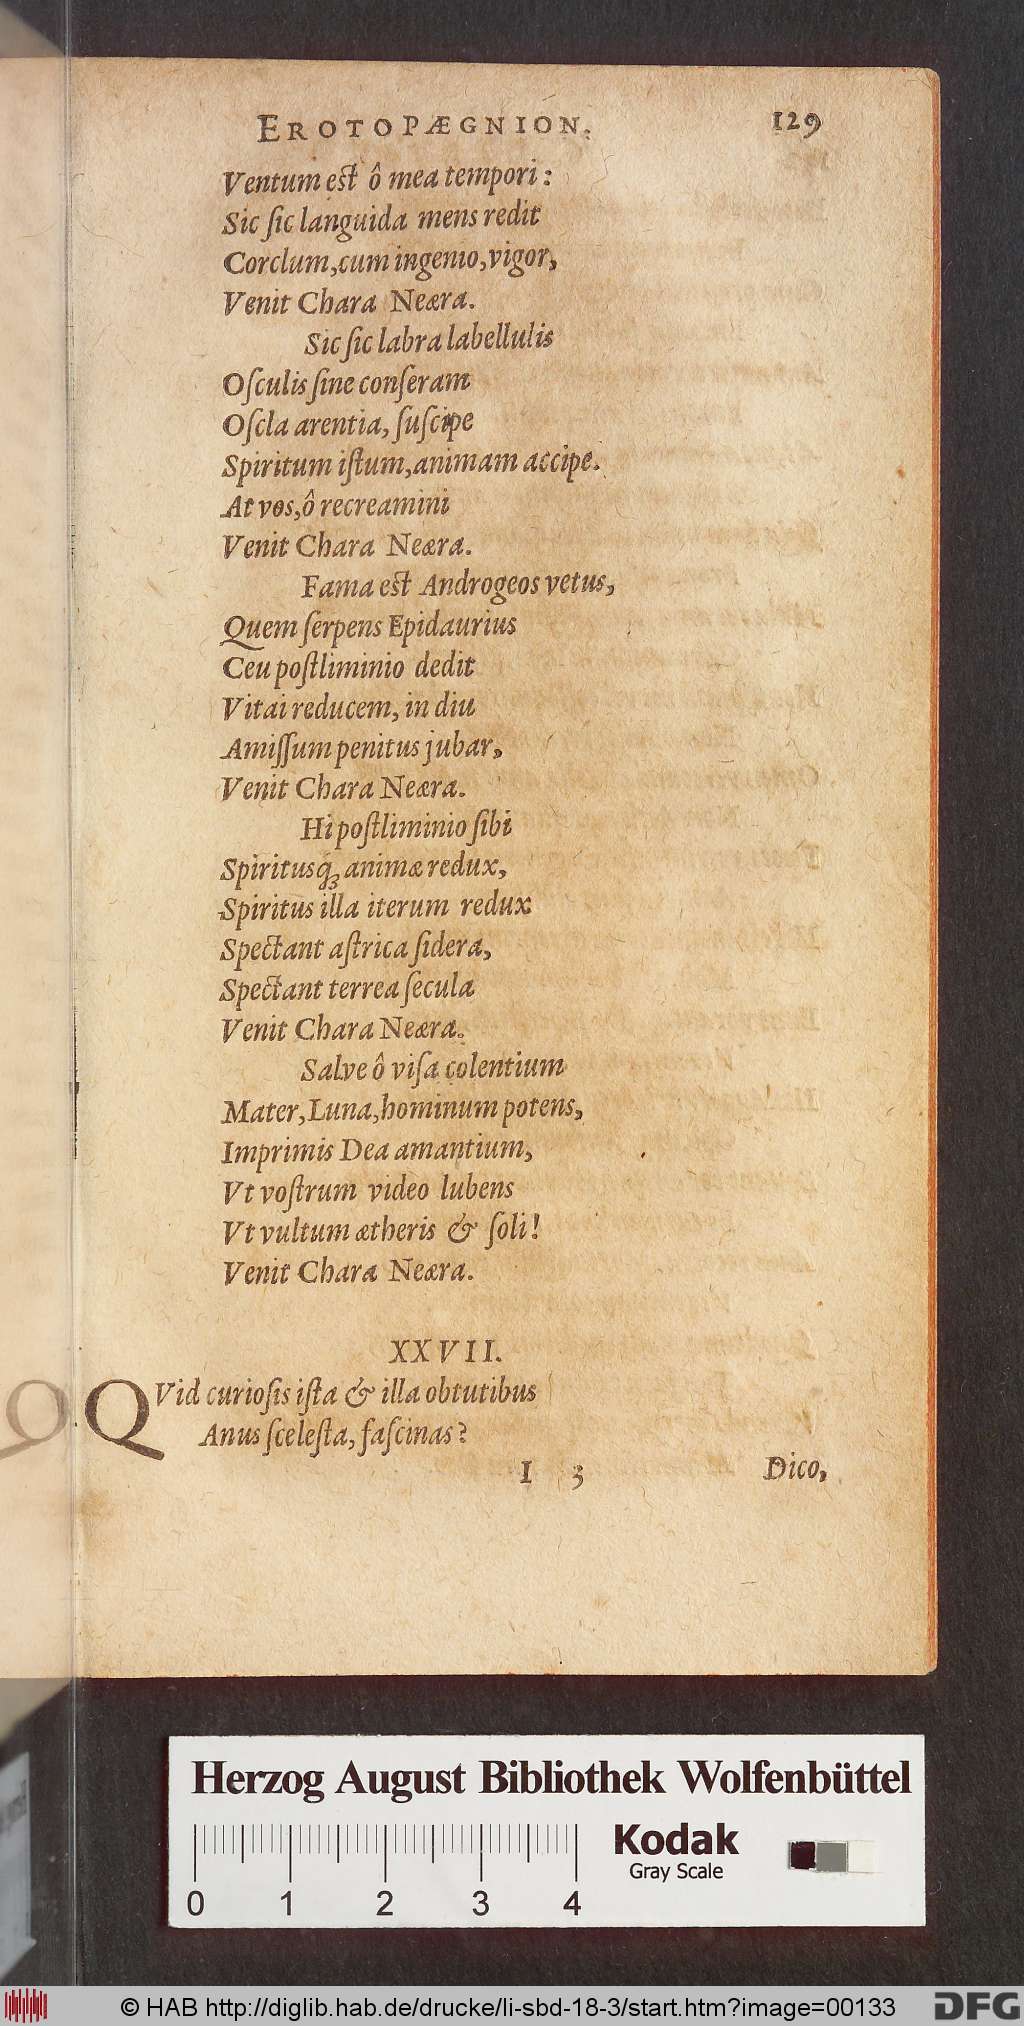 EROTOPÆGNION. 129
Ventum eſt ô mea tempori:
Sic ſic languida mens redit
Corclum, cum ingenio, vigor,
Venit Chara Neæra.
Sic ſic labra labellulis
Oſculis ſine conſeram
Oſcla arentia, ſuſcipe
Spiritum iſtum, animam accipe.
At vos, ô recreamini
Venit Chara Neæra.
Fama eſt Androgeos vetus,
Quem ſerpens Epidaurius
Ceu poſtliminio dedit
Vitai reducem, in diu
Amiſſum penitus jubar,
Venit Chara Neæra.
Hi poſtliminio ſibi
Spiritusq́; animæ redux,
Spiritus illa iterum redux
Spectant aſtrica ſidera,
Spectant terrea ſecula
Venit Chara Neæra.
Salve ô viſa colentium
Mater, Luna, hominum potens,
Imprimis Dea amantium,
Vt voſtrum video lubens
Vt vultum ætheris & ſoli!
Venit Chara Neæra.
XXVII.
QVid curioſis iſta & illa obtutibus
Anus ſceleſta, faſcinas?
I 3 Dico,
Herzog August Bibliothek Wolfenbüttel
Kodak
Gray Scale
0 1 2 3 4
© HAB http://diglib.hab.de/drucke/li-sbd-18-3/start.htm?image=00133 DFG